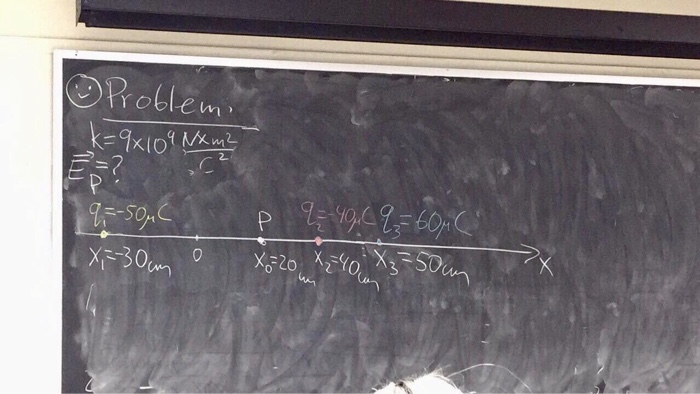 Problem.
k=9x10⁹ Nxm²/C²
E⃗p=?
q₁=-50μC P q₂=-40μC q₃=60μC
x₁=-30cm 0 x₀=20cm x₂=40cm x₃=50cm x